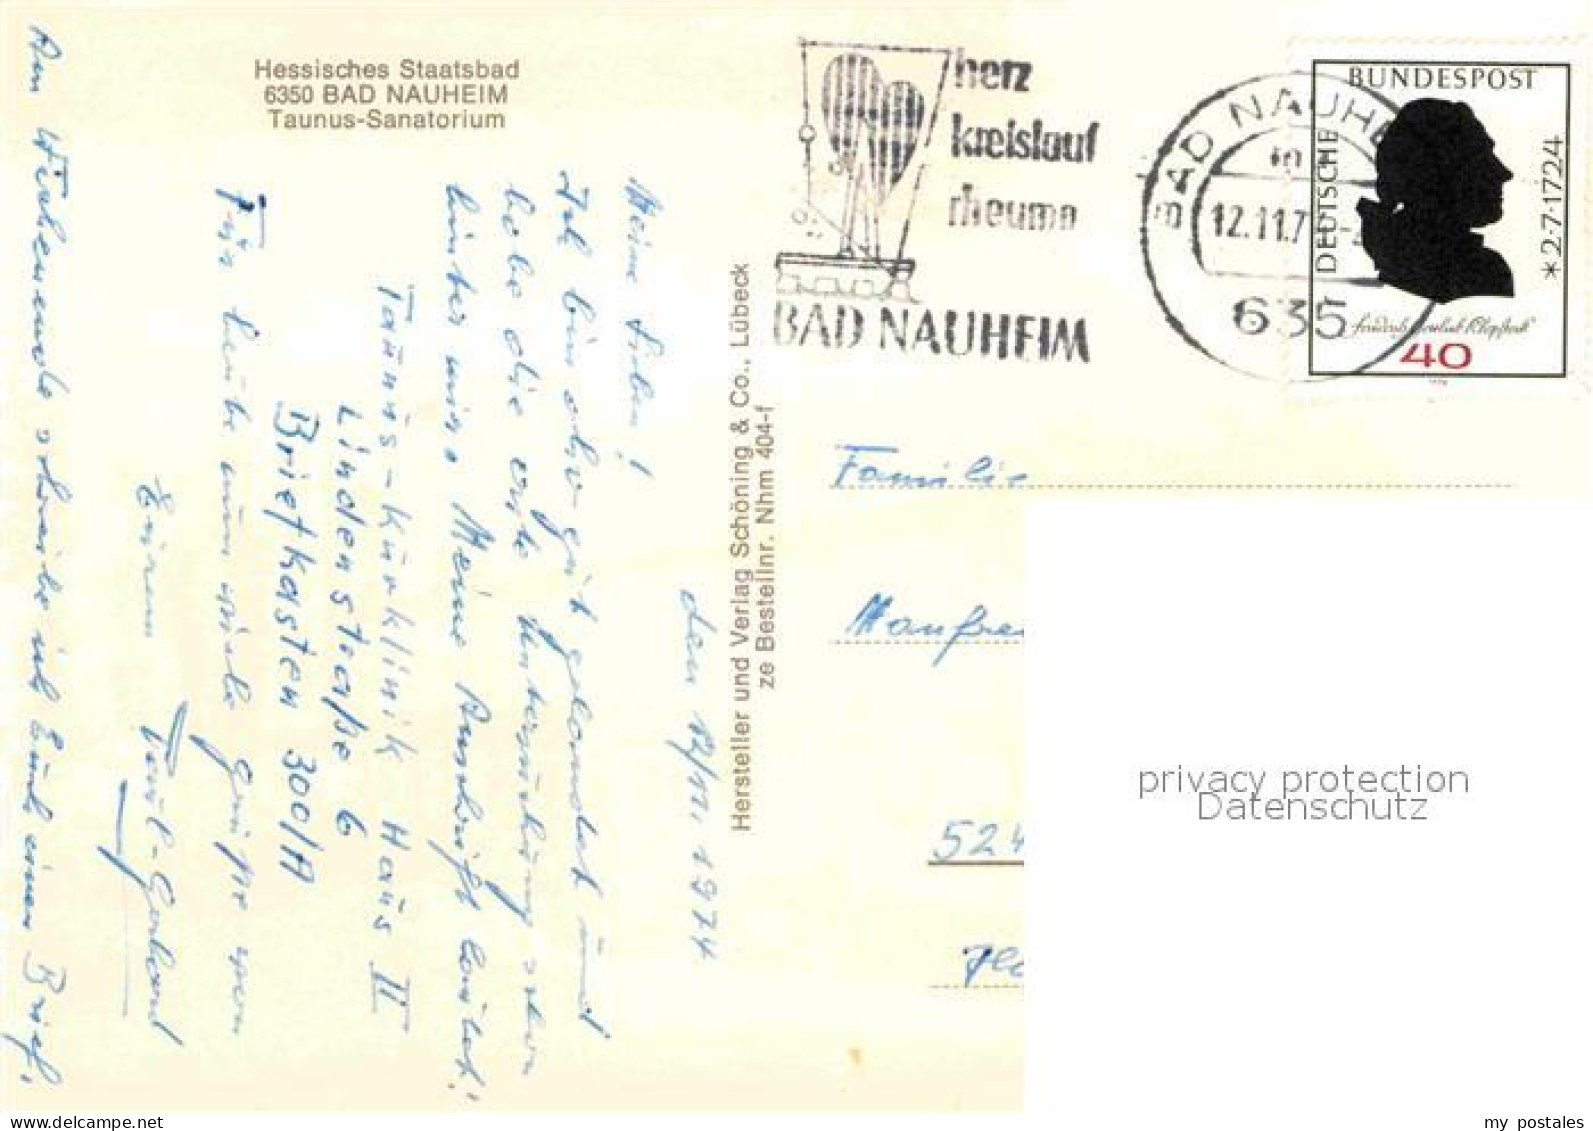 Hessisches Staatsbad
6350 BAD NAUHEIM
Taunus-Sanatorium
herz
kreislauf
rheuma
BAD NAUHEIM
BAD NAUHE
12.11.7
635
DEUTSCHE
BUNDESPOST
*2·7·1724
Friedrich Gottlieb Klopstock
40
1974
Hersteller und Verlag Schöning & Co., Lübeck
ze Bestellnr. Nhm 404-f
den 12/11. 1974
Meine Lieben!
Ich bin also gut gelandet und
habe die erste Untersuchung schon
hinter mir. Meine Anschrift lautet:
Taunus-Kurklinik Haus II
Lindenstraße 6
Briefkasten 300/A
Für heute nun viele Grüße von
Eurem
Paul-Gerhard
Am Wochenende schreibe ich Euch einen Brief.
Familie
Manfre
524
privacy protection
Datenschutz
www.delcampe.net
my_postales